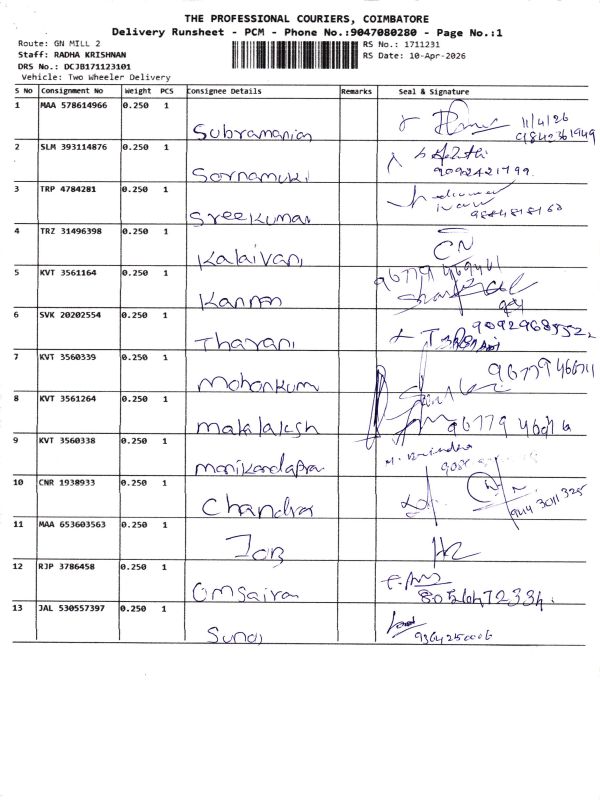 THE PROFESSIONAL COURIERS, COIMBATORE
Delivery Runsheet - PCM - Phone No.:9047080280 - Page No.:1
Route: GN MILL 2
Staff: RADHA KRISHNAN
DRS No.: DCJB171123101
Vehicle: Two Wheeler Delivery
RS No.: 1711231
RS Date: 10-Apr-2026
S No Consignment No Weight PCS Consignee Details Remarks Seal & Signature
1 MAA 578614966 0.250 1 Subramanian 11/4/26
2 SLM 393114876 0.250 1 Sornamuki 9092421799
3 TRP 4784281 0.250 1 Sreekumar
4 TRZ 31496398 0.250 1 Kalaivani CN
5 KVT 3561164 0.250 1 Kannan
6 SVK 20202554 0.250 1 Tharani 9092968552
7 KVT 3560339 0.250 1 Mohankum
8 KVT 3561264 0.250 1 Mahalaksh
9 KVT 3560338 0.250 1 Manikandapra
10 CNR 1938933 0.250 1 Chandra 944 3011 325
11 MAA 653603563 0.250 1 JOB
12 RJP 3786458 0.250 1 Omsairam
13 JAL 530557397 0.250 1 Sundi 9364250006